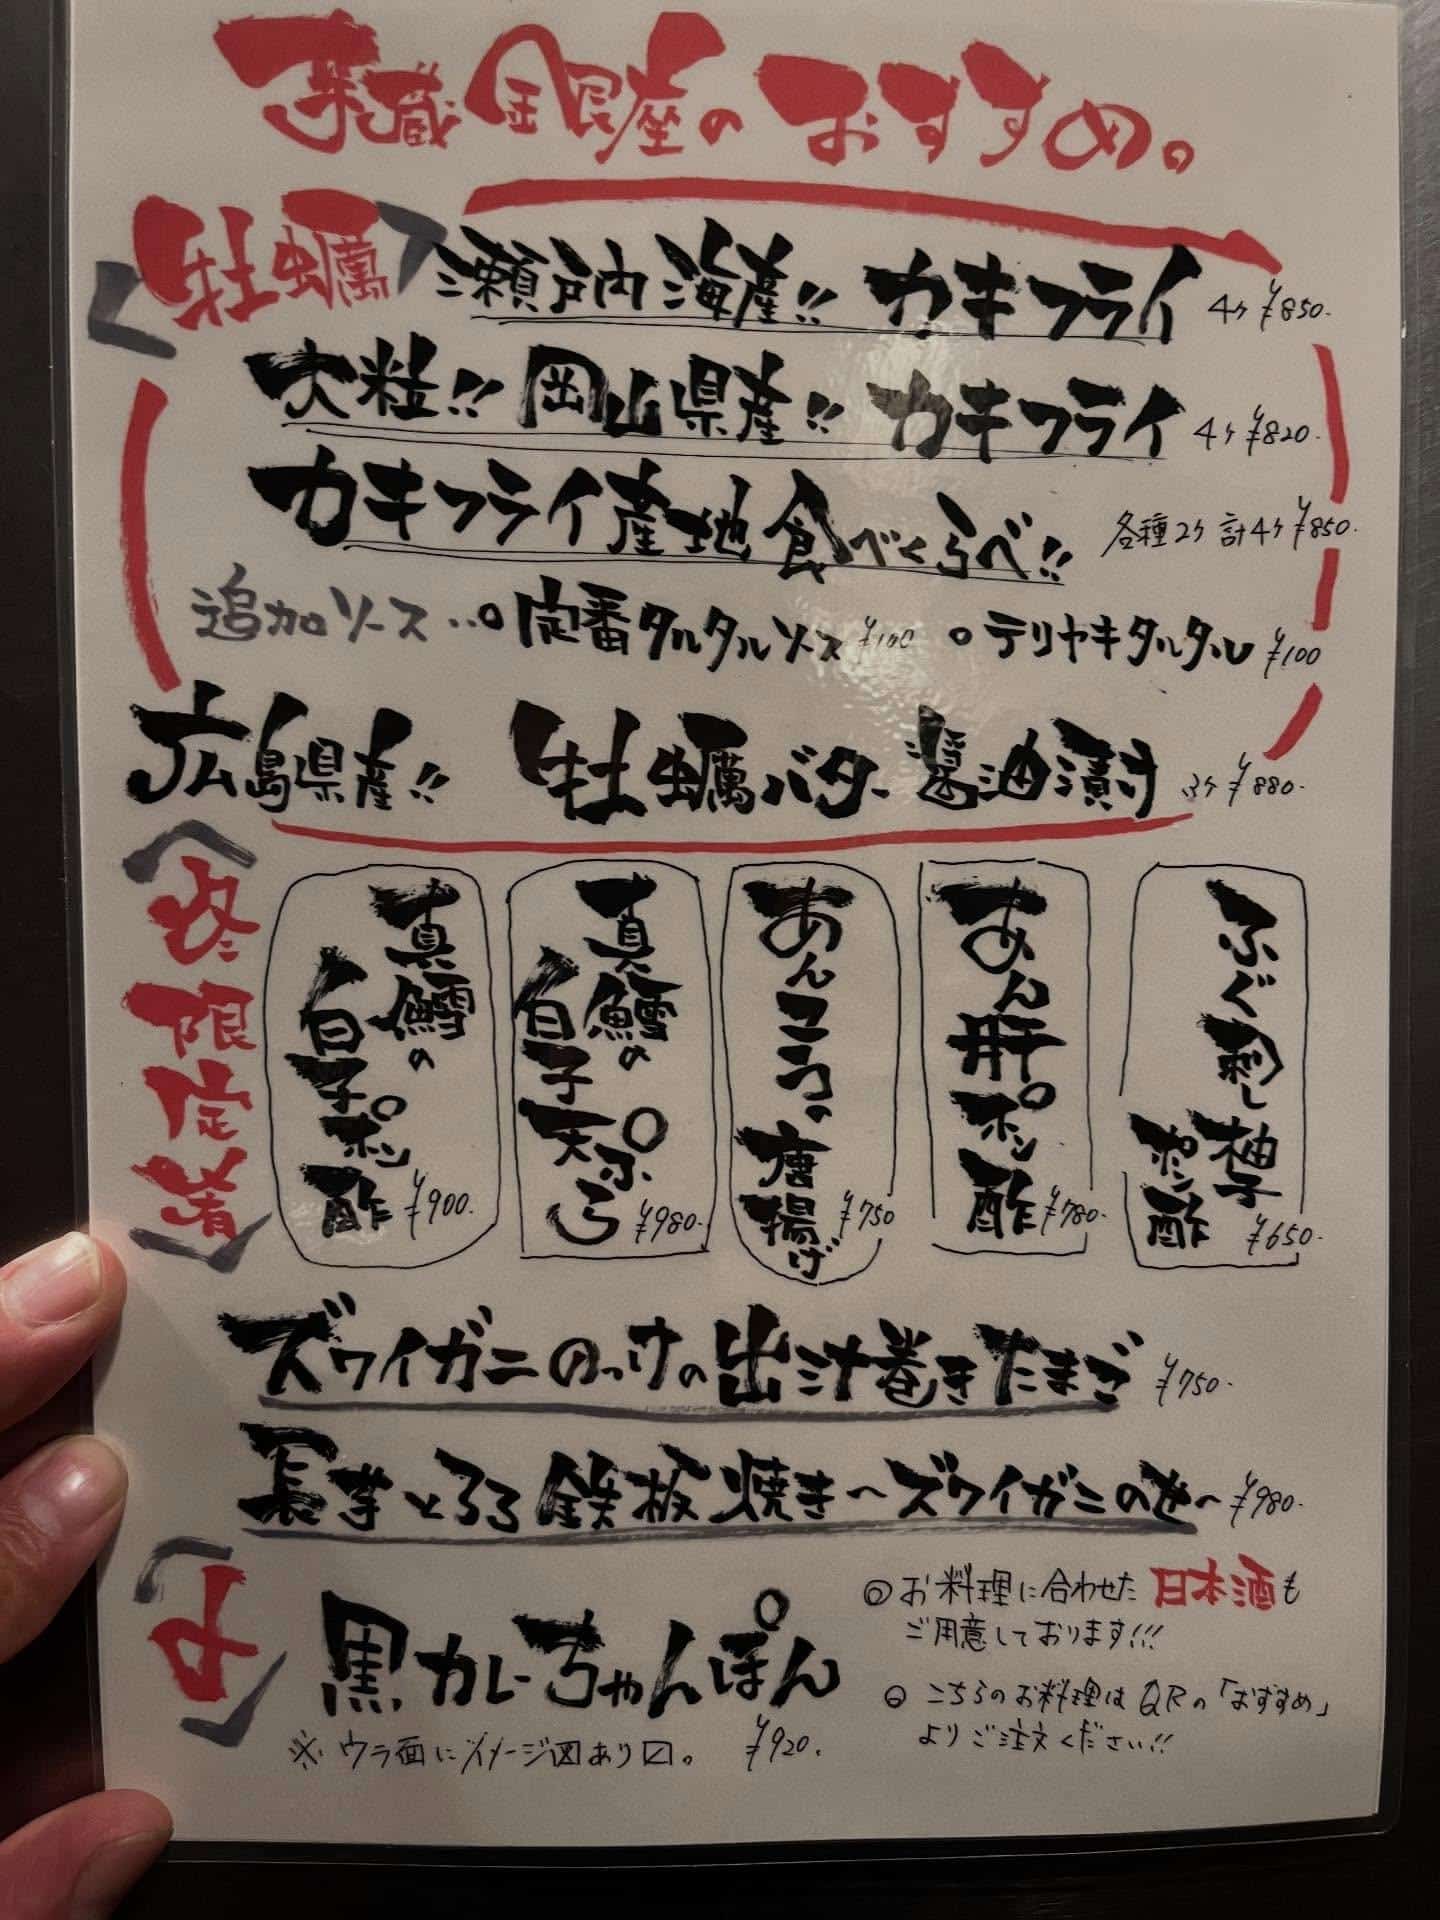 蔵 銀座のおすすめ。
牡蠣
瀬戸内海産!! カキフライ 4ヶ ¥850-
大粒!! 岡山県産!! カキフライ 4ヶ ¥820-
カキフライ産地食べくらべ!! 各種2ヶ 計4ヶ ¥850-
追加ソース…○定番タルタルソース ¥100 ○テリヤキタルタル ¥100
広島県産!! 牡蠣バター醤油漬け 3ヶ ¥880-
冬限定
真鱈の白子ポン酢 ¥900-
真鱈の白子天ぷら ¥980-
あんこうの唐揚げ ¥750
あん肝ポン酢 ¥780-
ふぐ刺し 柚子ポン酢 ¥650-
ズワイガニのっけの出汁巻きたまご ¥750-
長芋とろろ鉄板焼き〜ズワイガニのせ〜 ¥980-
〆
黒カレーちゃんぽん
¥920-
※ウラ面にイメージ図あり〼。
◎お料理に合わせた日本酒も
ご用意しております!!!
◎こちらのお料理はQRの「おすすめ」
よりご注文ください!!